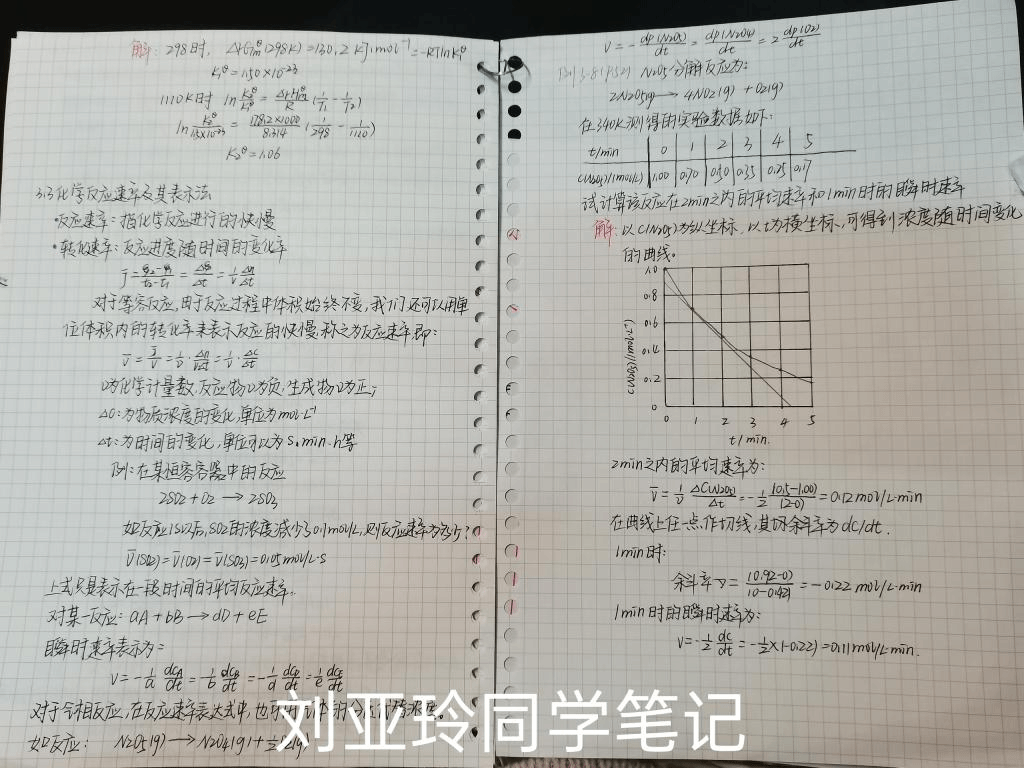 解: 298时, ΔrGmθ(298K)=130.2 kJ·mol⁻¹=-RTlnK₁θ
K₁θ=1.50×10⁻²³
1110K时 ln K₂θ/K₁θ = ΔrHmθ/R (1/T₁ - 1/T₂)
ln K₂θ/1.5×10⁻²³ = 178.2×1000/8.314 (1/298 - 1/1110)
K₂θ=1.06
3.3 化学反应速率及其表示法
·反应速率: 指化学反应进行的快慢
·转化速率: 反应进度随时间的变化率
对于等容反应,由于反应过程中体积始终不变,我们还可以用单
位体积内的转化率来表示反应的快慢,称之为反应速率即:
υ为化学计量数,反应物υ为负,生成物υ为正;
ΔC:为物质浓度的变化,单位为mol·L⁻¹
Δt:为时间的变化,单位可以为s、min、h等
例:在某恒容容器中的反应
2SO₂+O₂→2SO₃
如反应1S以后,SO₂的浓度减少了0.1mol/L,则反应速率为多少?
v̄(SO₂)=v̄(O₂)=v̄(SO₃)=0.05mol/L·s
上式只是表示在一段时间的平均反应速率.
对某一反应: aA+bB→dD+eE
瞬时速率表示为:
v=-1/a dcA/dt=-1/b dcB/dt=-1/d dcD/dt=1/e dcE/dt
对于气相反应,在反应速率表达式中,也
如反应: N₂O₅(g)→N₂O₄(g)+½O₂(g)
v=-dp(N₂O₅)/dt=dp(N₂O₄)/dt=2dp(O₂)/dt
N₂O₅分解反应为:
2N₂O₅(g)→4NO₂(g)+O₂(g)
在340K测得的实验数据如下:
t/min 0 1 2 3 4 5
C(N₂O₅)/(mol/L) 1.00 0.70 0.50 0.35 0.25 0.17
试计算该反应在2min之内的平均速率和1min时的瞬时速率
解:以C(N₂O₅)为纵坐标,以t为横坐标,可得到浓度随时间变化
的曲线。
1.0
0.8
0.6
0.4
0.2
0
0 1 2 3 4 5
C(N₂O₅)/(mol/L)
t/min.
2min之内的平均速率为:
v̄=1/υ ΔC(N₂O₅)/Δt=-1/2 (0.5-1.00)/(2-0)=0.12mol/L·min
在曲线上任一点作切线,其切斜率为dc/dt.
1min时:
斜率γ=(0.92-0)/(0-0.42)=-0.22 mol/L·min
1min时的瞬时速率为:
v=-1/2 dc/dt=-1/2×(-0.22)=0.11mol/L·min.
刘亚玲同学笔记